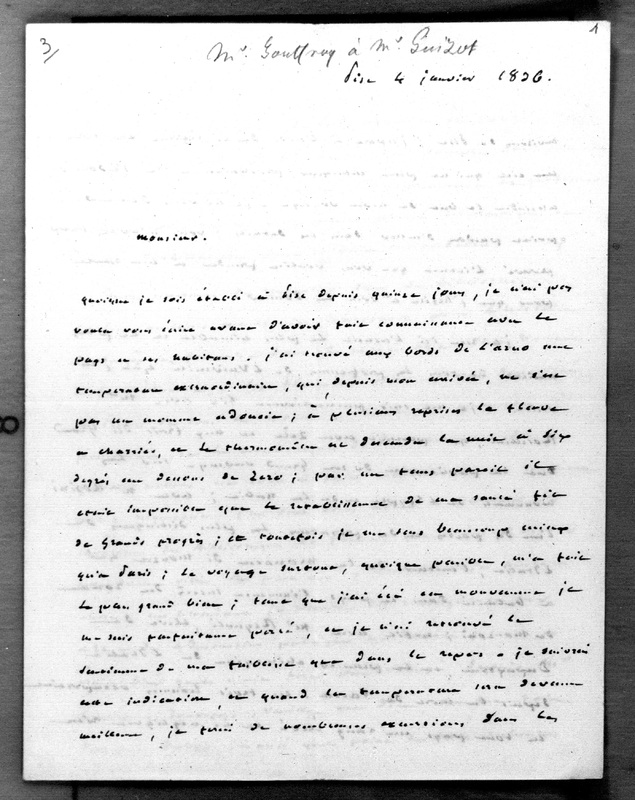 3/
1
Mr. Jouffroy à Mr. Guizot
Pise 4 janvier 1836.
monsieur.
quoique je sois établi à Pise depuis quinze jours, je n'ai pas
voulu vous écrire avant d'avoir fait connaissance avec le
pays et ses habitans. j'ai trouvé aux bords de l'arno une
temperature extraordinaire, qui, depuis mon arrivée, ne s'est
pas un moment adoucie; à plusieurs reprises le fleuve
a charrié, et le thermomètre est descendu la nuit à dix
degrés au dessous de zero; par un tems pareil il
etait impossible que le retablissement de ma santé fit
de grands progrès; et toutefois je me sens beaucoup mieux
qu'à Paris; le voyage surtout, quoique penible, m'a fait
le plus grand bien; tant que j'ai été en mouvement je
me suis parfaitement porté, et je n'ai retrouvé le
sentiment de ma faiblesse que dans le repos. je suivrai
cette indication, et quand la temperature sera devenue
meilleure, je ferai de nombreuses excursions dans les